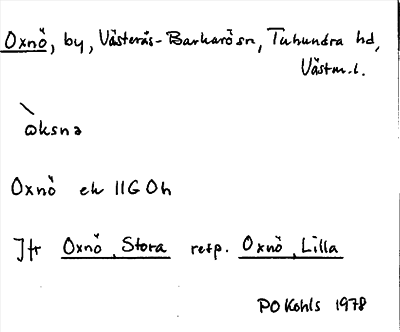 Oxnö, by, Västerås-Barkarö sn, Tuhundra hd,
Västm.l.
Oxnö ek 11G 0h
Jfr Oxnö, Stora resp. Oxnö, Lilla
PO Kohls 1978